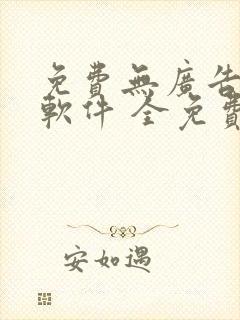 免費無廣告
軟件 全免費
安如遇